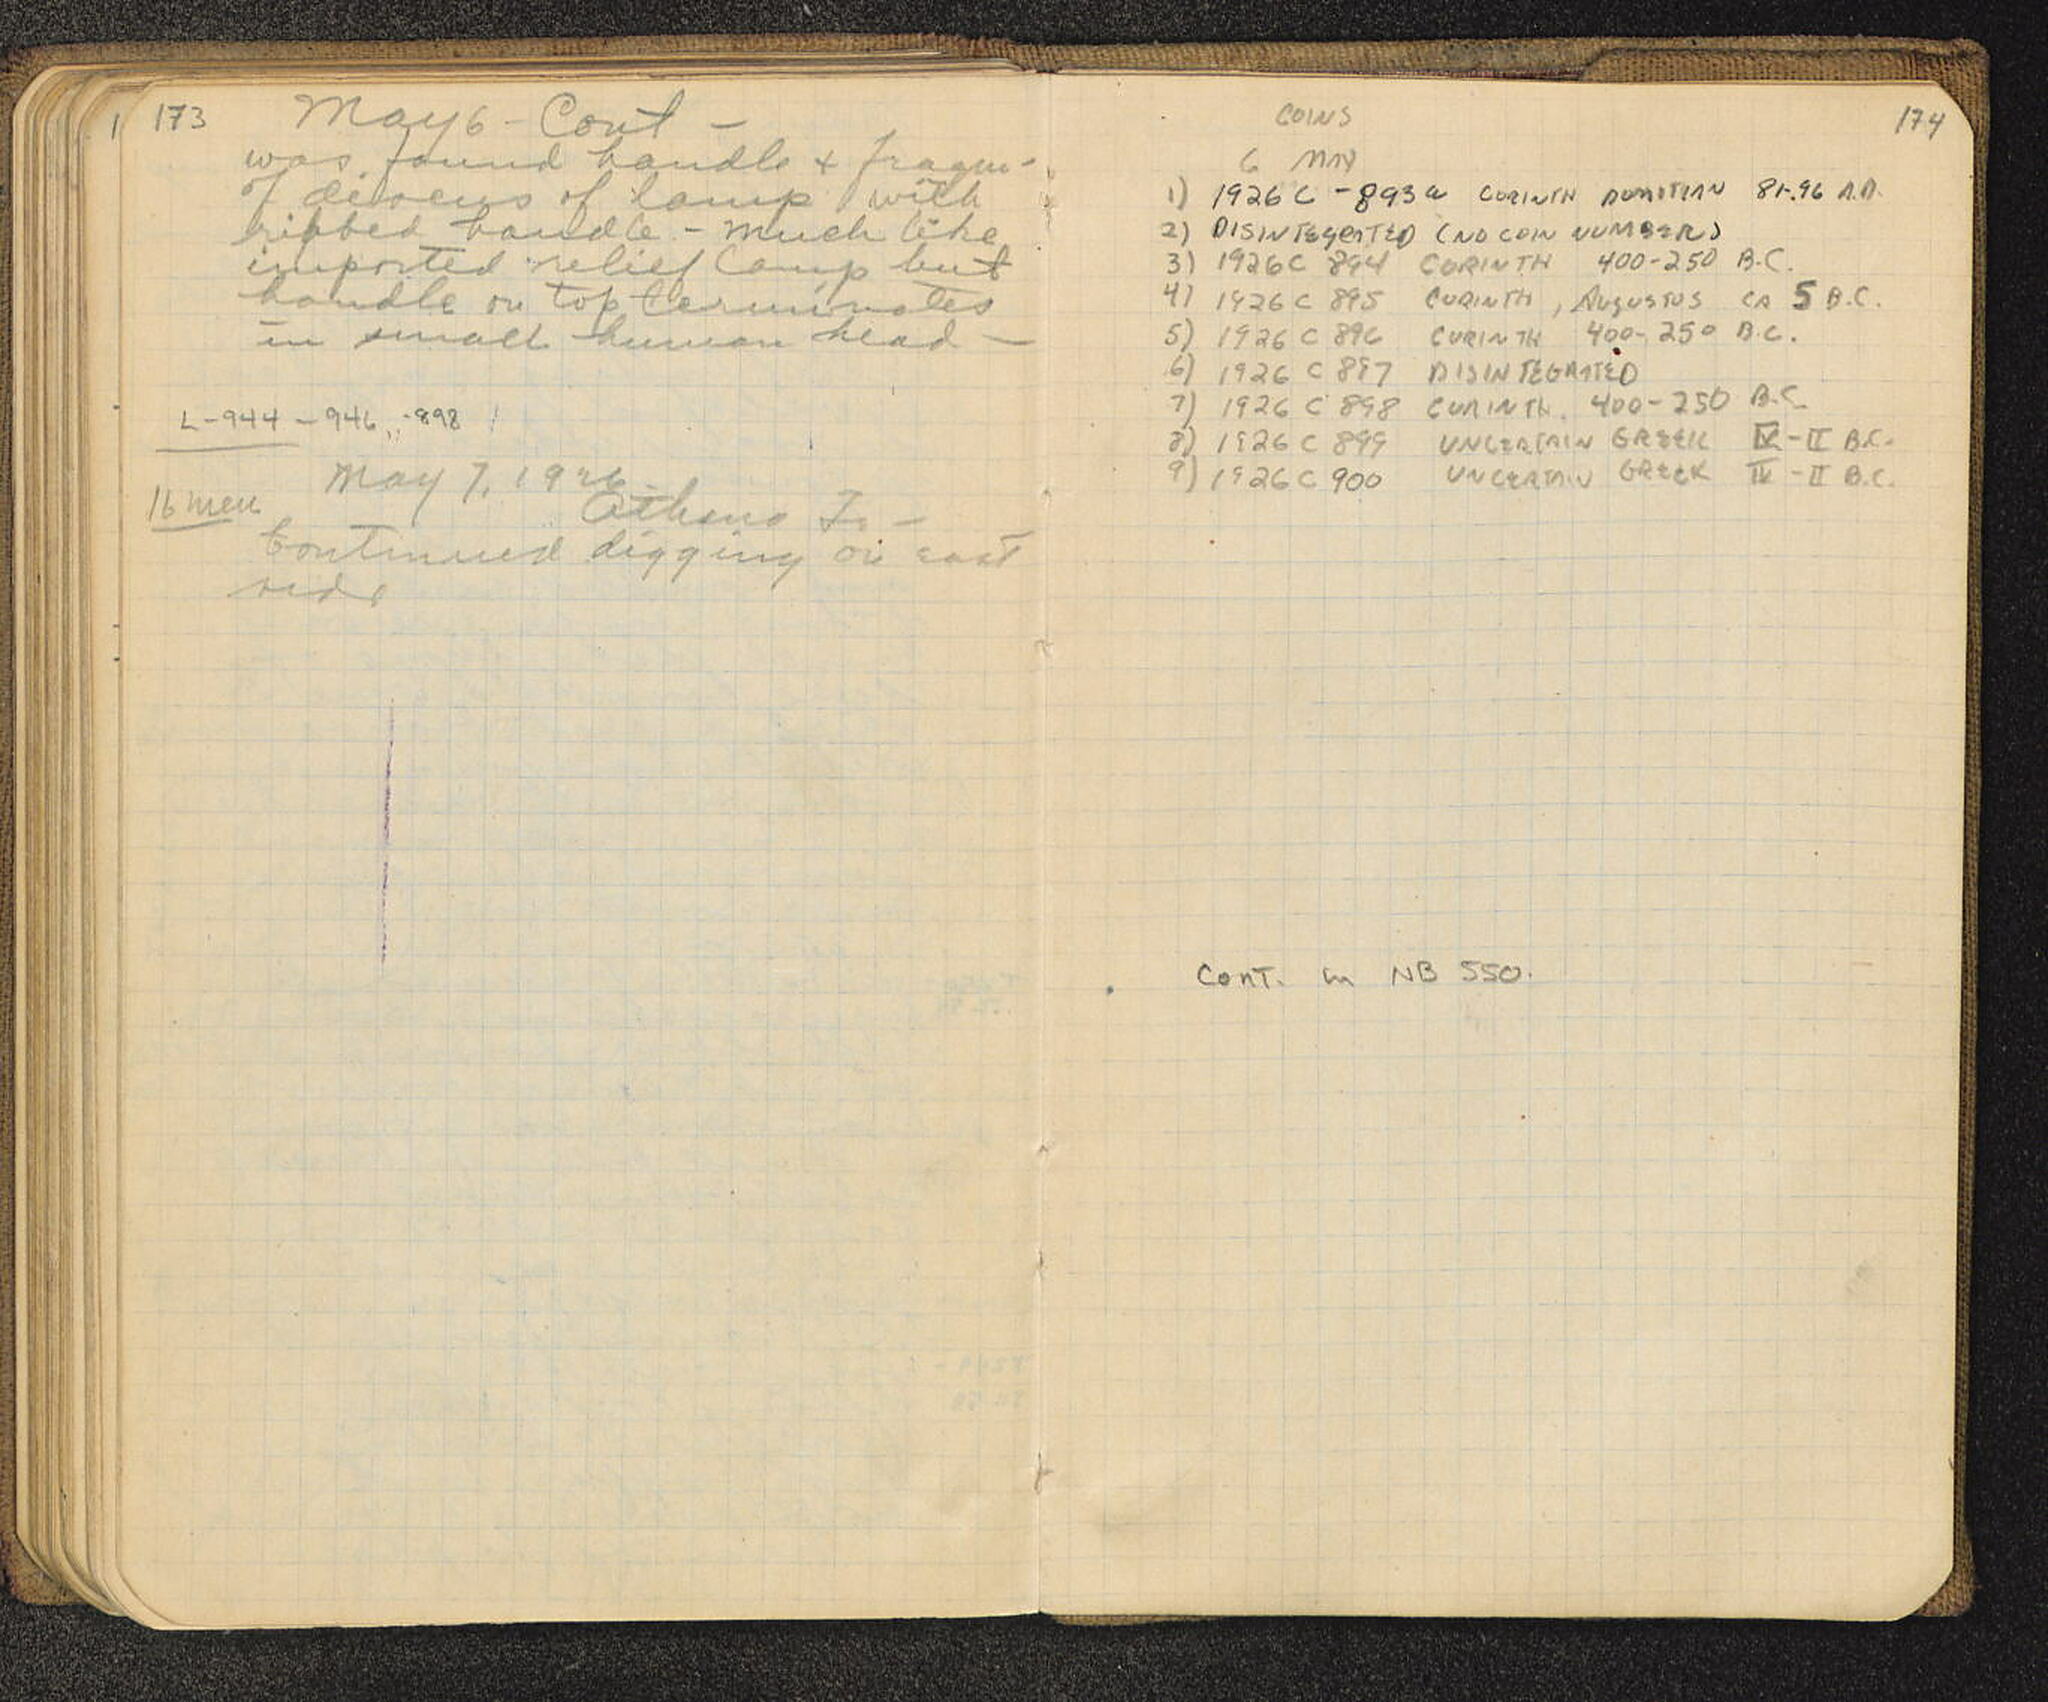 173
May 6 - Cont -
was found handle + fragm-
of discus of lamp with
ribbed handle - much like
imported relief lamp but
handle on top terminates
in small human head -
L-944 - 946, -898
May 7, 1926
16 men
Athena Tr -
Continued digging on east
side
174
COINS
6 MAY
1) 1926 C - 893a CORINTH DOMITIAN 81-96 A.D.
2) DISINTEGRATED (NO COIN NUMBER)
3) 1926 C 894 CORINTH 400-250 B.C.
4) 1926 C 895 CORINTH, AUGUSTUS CA 5 B.C.
5) 1926 C 896 CORINTH 400-250 B.C.
6) 1926 C 897 DISINTEGRATED
7) 1926 C 898 CORINTH. 400-250 B.C.
8) 1926 C 899 UNCERTAIN GREEK IV-II B.C.
9) 1926 C 900 UNCERTAIN GREEK IV-II B.C.
Cont. in NB 550.